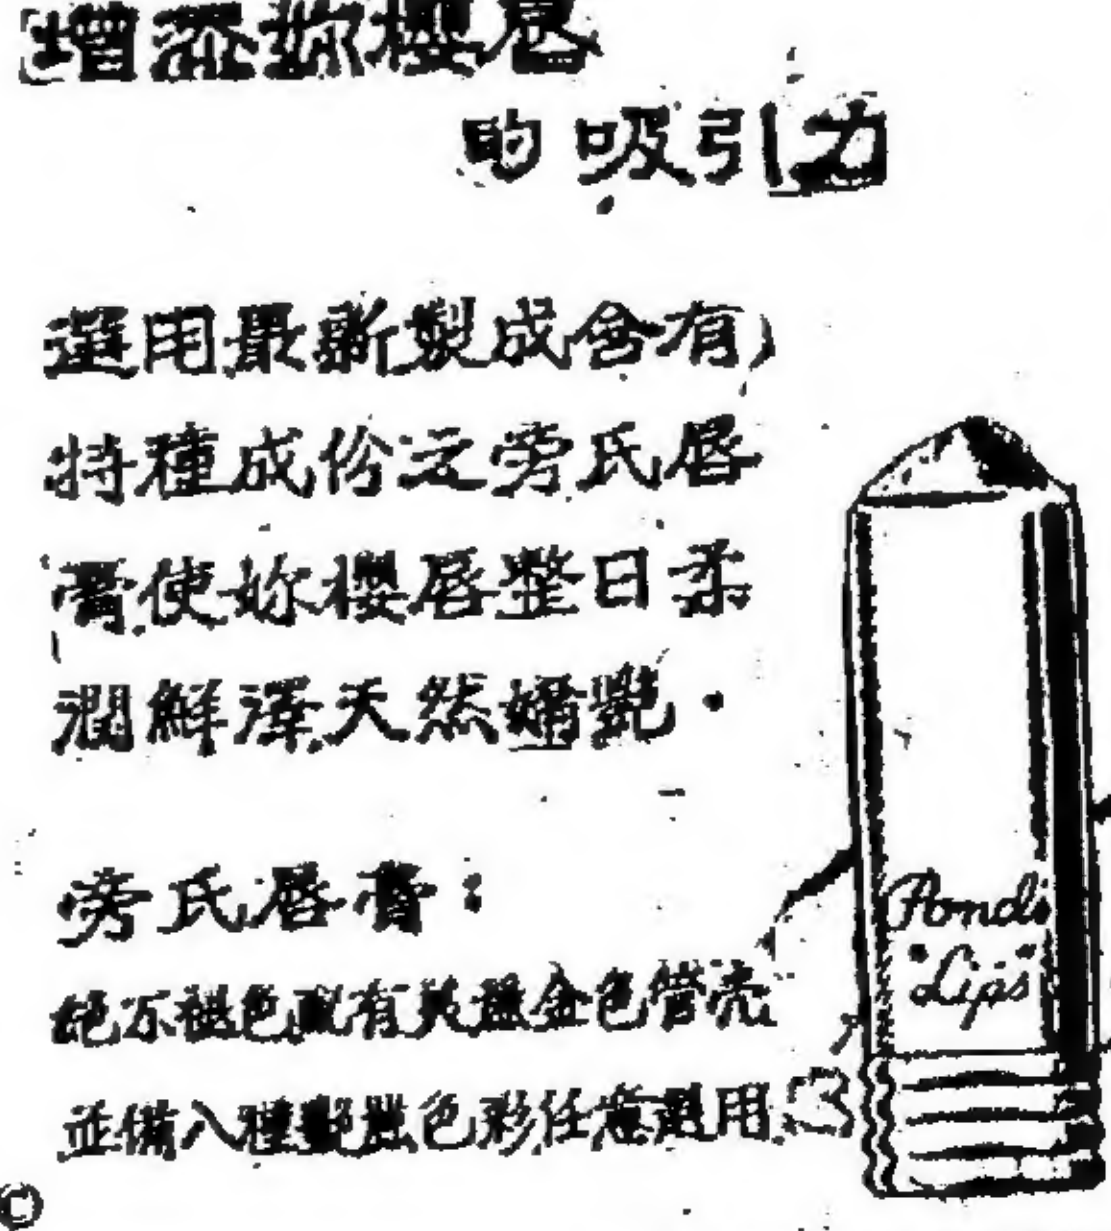 增添妳櫻唇
的吸引力
選用最新製成含有
特種成份之旁氏唇
膏使妳櫻唇整日柔
潤鮮澤天然嬌艷・
旁氏唇膏：
絕不褪色配有美麗金色管壳
並備八種艷麗色彩任意選用
Pond's
"Lips"
©